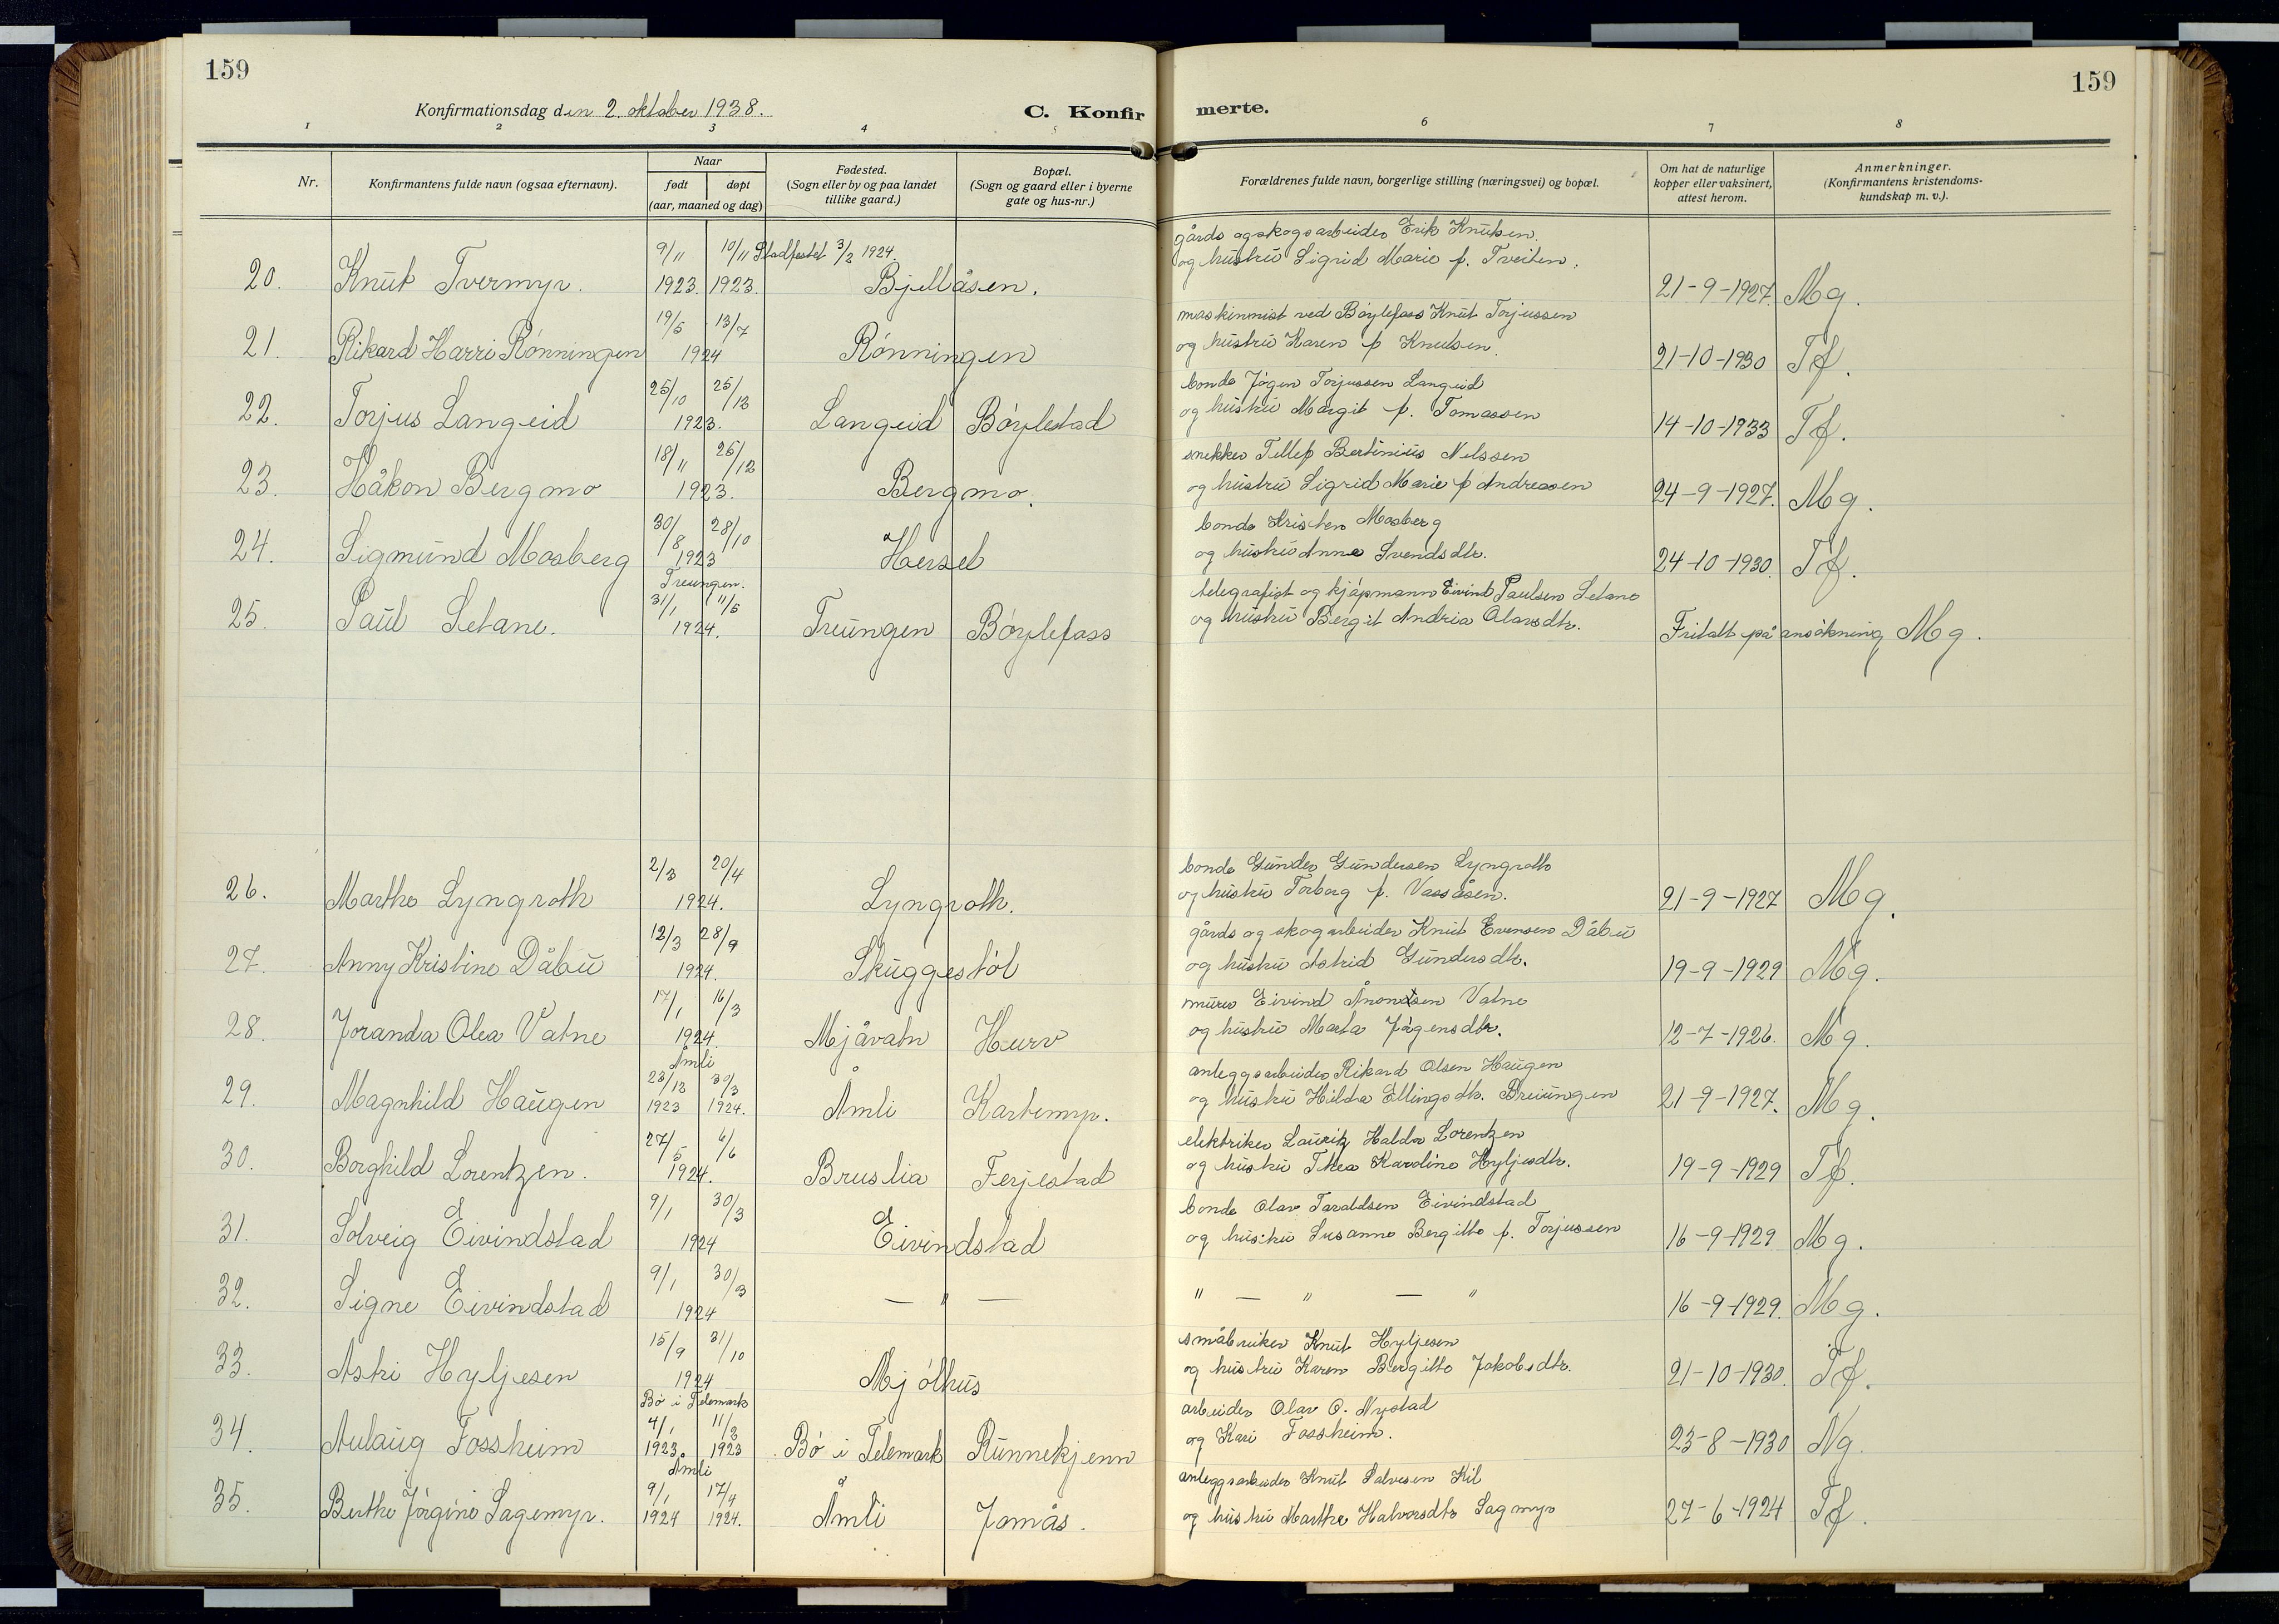 159
159
Konfirmationsdag den 2. oktober 1938.
C. Konfirmerte.
1 2 3 4 5 6 7 8
Nr.
Konfirmantens fulde navn (ogsaa efternavn).
Naar
født
døpt
(aar, maaned og dag)
Fødested.
(Sogn eller by og paa landet
tillike gaard.)
Bopæl.
(Sogn og gaard eller i byerne
gate og hus-nr.)
Forældrenes fulde navn, borgerlige stilling (næringsvei) og bopæl.
Om hat de naturlige
kopper eller vaksinert,
attest herom.
Anmerkninger.
(Konfirmantens kristendoms-
kundskap m. v.).
9/11 10/11 Stadfestet 3/2 1924. gårds og skogsarbeider Erik Knutsen.
og hustru Sigrid Marie f. Tveiten.
20. Knut Tvermyr. 1923. 1923. Bjellåsen. 21-9-1927. Mg.
19/5 13/7 maskinmist ved Bøylefoss Knut Torjussen
21. Rikard Harri Rönningen 1924 Rönningen og hustru Karen f Knutsen. 21-10-1930 Tf.
25/10 25/12 bonde Jörgen Torjussen Langeid
22. Torjus Langeid 1923. Langeid Böylestad og hustru Margit f. Tomassen 14-10-1933 Tf.
18/11 26/12 snekker Tellef Bertinius Nilssen
23. Håkon Bergmo 1923. Bergmo. og hustru Sigrid Marie f Andreasen 24-9-1927. Mg.
30/8 28/10 bonde Kristen Mosberg
24. Sigmund Mosberg 1923 Hersel og hustru Anne Svendsdtr. 24-10-1930. Tf.
Treungen.
31/1 11/5 telegrafist og kjöpmann Eivind Paulsen Setane
25. Paul Setane. 1924. Treungen Böylefoss og hustru Bergit Andria Olavsdtr. Fritatt på ansökning Mg.
2/3 20/4 bonde Gunder Gundersen Lyngroth
26. Marthe Lyngroth 1924. Lyngroth. og hustru Torborg f. Vassåsen. 21-9-1927 Mg.
12/3 28/9 gårds og skogarbeider Knut Evensen Dåbu
27. Anny Kristine Dåbu 1924. Skuggestöl og hustru Astrid Gundersdtr. 19-9-1929 Mg.
17/1 16/3 murer Eivind Ånonsen Vatne
28. Joranda Olea Vatne 1924. Mjåvatn Hurv og hustru Marta Jörgensdtr. 12-7-1926. Mg.
Åmli
23/12 30/3 anleggsarbeider Rikard Olsen Haugen
29. Magnhild Haugen 1923 1924. Åmli Kartemyr. og hustru Hilda Ellingsdtr. Breiungen 21-9-1927. Mg.
27/5 6/6 elektriker Lauritz Haldor Lorentzen
30. Borghild Lorentzen. 1924. Bruslia Ferjestad og hustru Thea Karoline Hyljesdtr. 19-9-1929 Tf.
9/1 30/3 bonde Olav Taraldsen Eivindstad
31. Solveig Eivindstad 1924 Eivindstad og hustru Susanne Bergitte f. Torjussen 16-9-1929 Mg.
9/1 30/3
32. Signe Eivindstad 1924 — " — " — " — " 16-9-1929. Mg.
15/9 31/10 småbruker Knut Hyljesen
33. Astri Hyljesen 1924 Mjölhus og hustru Karen Bergitte Jakobsdtr. 21-10-1930. Tf.
Bö i Telemark
4/1 11/3 arbeider Olav O. Nystad
34. Aulaug Fossheim 1923. 1923 Bö i Telemark Runnekjenn og Kari Fossheim. 23-8-1930 Ng.
Åmli
9/1 17/4 anleggsarbeider Knut Salvesen Kil
35. Berthe Jörgine Sagemyr. 1924 1924. Åmli Jomås. og hustru Marthe Halvorsdtr Sagmyr 27-6-1924 Tf.